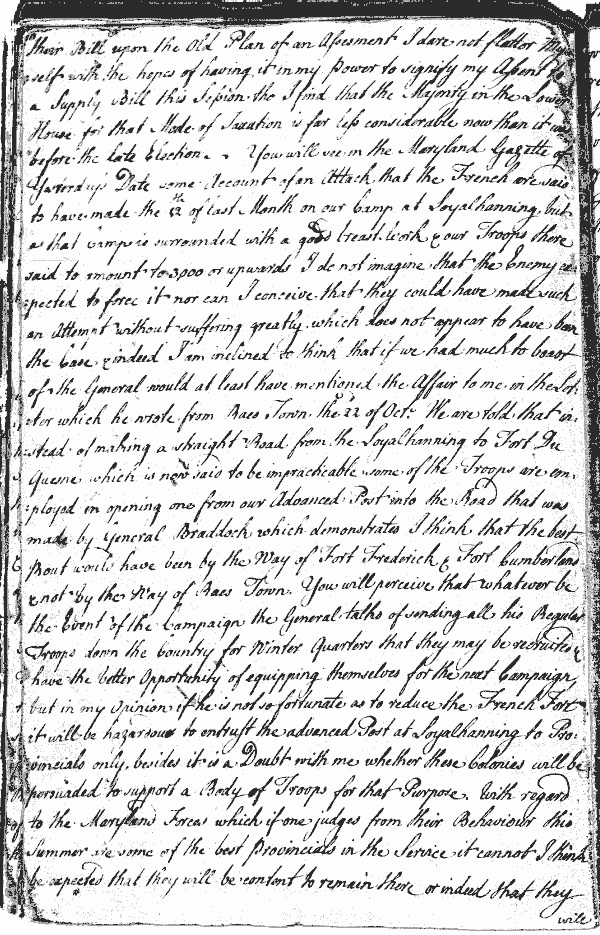 their Bill upon the Old Plan of an Assesment I dare not flatter my
self with the hopes of having it in my Power to signify my Assent to
a Supply Bill this Session tho I find that the Majority in the Lower
House for that Mode of Taxation is far less considerable now than it was
before the late Election. You will see in the Maryland Gazette of
Yesterdays Date some Account of an Attack that the French are said
to have made the 12th of last Month on our Camp at Loyalhanning, but
as that Camp is surrounded with a good breast Work & our Troops there
said to amount to 3,000 or upwards I do not imagine that the Enemy ex:
:pected to force it nor can I conceive that they could have made such
an Attempt without suffering greatly which does not appear to have been
the Case & indeed I am inclined to think that if we had much to boast
of the General would at least have mentioned the Affair to me in the Let:
:ter which he wrote from Raes Town the 22 of Octr. We are told that in:
:stead of making a straight Road from the Loyalhanning to Fort Du
Quesne which is now said to be impracticable some of the Troops are em:
:ployed in opening one from our Advanced Post into the Road that was
made by General Braddock which demonstrates I think that the best
Rout would have been by the Way of Fort Frederick & Fort Cumberland
& not by the Way of Raes Town. You will perceive that whatever be
the Event of the Campaign the General talks of sending all his Regular
Troops down the Country for Winter Quarters that they may be recruited &
have the better Opportunity of equipping themselves for the next Campaign,
but in my Opinion if he is not so fortunate as to reduce the French Fort
it will be hazardous to entrust the advanced Post at Loyalhanning to Pro:
:vincials only, besides it is a Doubt with me whether these Colonies will be
persuaded to support a Body of Troops for that Purpose. With regard
to the Maryland Forces which if one judges from their Behaviour this
Summer are some of the best Provincials in the Service it cannot I think
be expected that they will be content to remain there or indeed that they
will